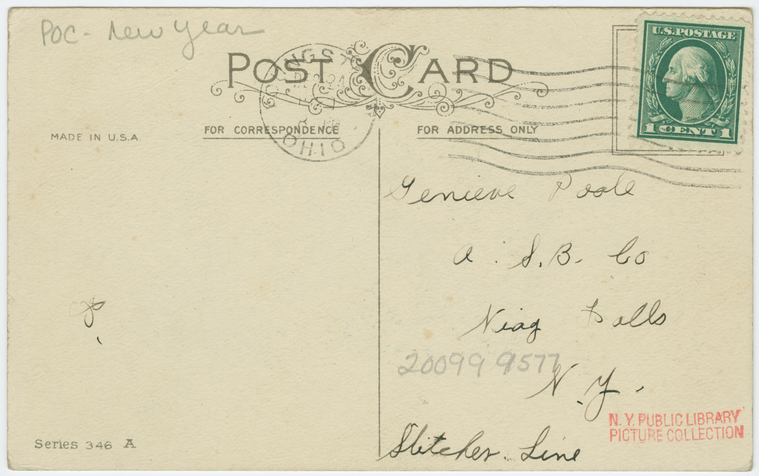 POC - New Year
POST CARD
U.S. POSTAGE
1 CENT 1
OHIO
MADE IN U.S.A.
FOR CORRESPONDENCE
FOR ADDRESS ONLY
Genieve Poole
A. S. B. Co
Niag Falls
20099 9577
N. Y.
Stitcher Line
N. Y. PUBLIC LIBRARY
PICTURE COLLECTION
Series 346 A